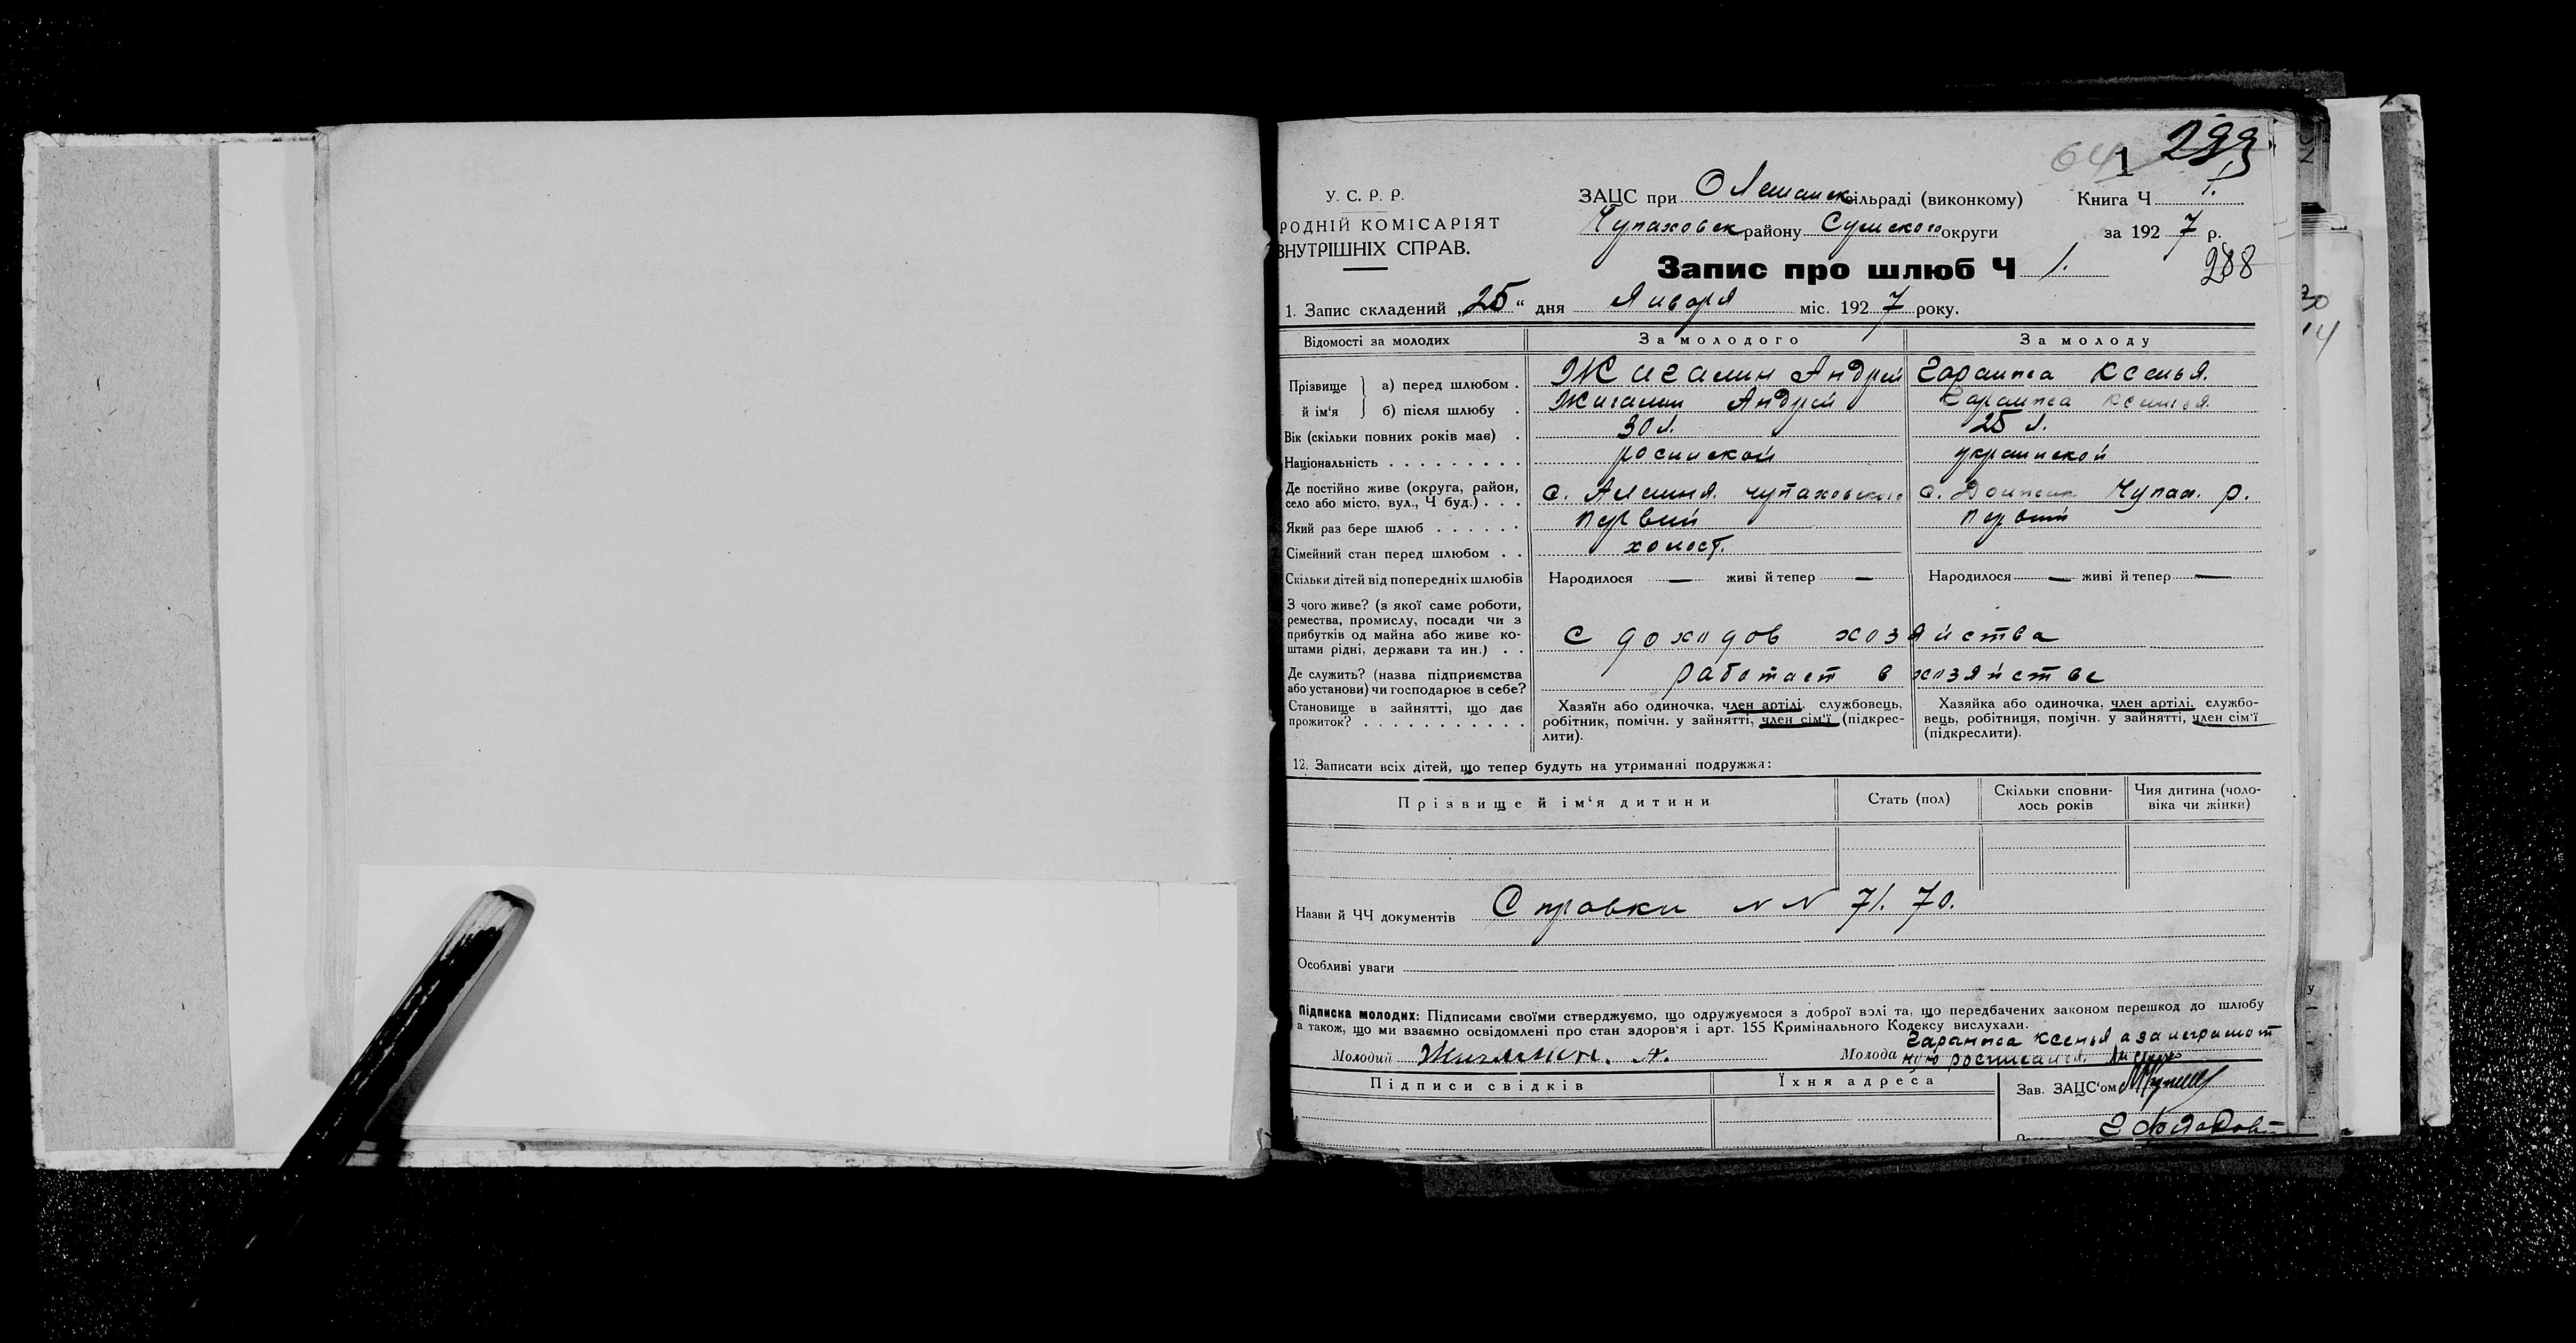 1
64
У. С. Р. Р.
РОДНІЙ КОМІСАРІЯТ
ВНУТРІШНІХ СПРАВ.
ЗАЦС при сільраді (виконкому) Книга Ч 1.
Чупаховск району Сумского округи за 1927 р.
Запис про шлюб Ч 1. 288
1. Запис складений „25“ дня Января міс. 1927 року.
Відомості за молодих За молодого За молоду
Прізвище й ім‘я а) перед шлюбом . Жигалин Андрей Ксенья.
б) після шлюбу . Жигалин Андрей Ксенья
Вік (скільки повних років має) . 30 л. 25 л.
Національність . . . . . . . . . росийской украинской
Де постійно живе (округа, район, село або місто, вул., Ч буд.) . . . с. Алешня. Чупаховского с. Чупах. р.
Який раз бере шлюб . . . . . . первий первий
Сімейний стан перед шлюбом . . холост.
Скільки дітей від попередніх шлюбів Народилося — живі й тепер — Народилося — живі й тепер —
З чого живе? (з якої саме роботи,
ремества, промислу, посади чи з
прибутків од майна або живе ко-
штами рідні, держави та ин.) . . с доходов хозяйства
Де служить? (назва підприємства
або установи) чи господарює в себе? работает в хозяйстве
Становище в зайнятті, що дає
прожиток? . . . . . . . . . . .
Хазяїн або одиночка, член артілі, службовець,
робітник, помічн. у зайнятті, член сім‘ї (підкрес-
лити).
Хазяйка або одиночка, член артілі, службо-
вець, робітниця, помічн. у зайнятті, член сім‘ї
(підкреслити).
12. Записати всіх дітей, що тепер будуть на утриманні подружжя:
Прізвище й ім‘я дитини Стать (пол) Скільки сповни-
лось років Чия дитина (чоло-
віка чи жінки)
Назви й ЧЧ документів Справки N N 71. 70.
Особливі уваги
Підписка молодих: Підписами своїми стверджуємо, що одружуємося з доброї волі та, що передбачених законом перешкод до шлюбу
а також, що ми взаємно освідомлені про стан здоров‘я і арт. 155 Кримінального Кодексу вислухали.
Ксенья а за неграмот
Молодий Жигалин. А. Молода ную росписался
Підписи свідків Їхня адреса Зав. ЗАЦС‘ом